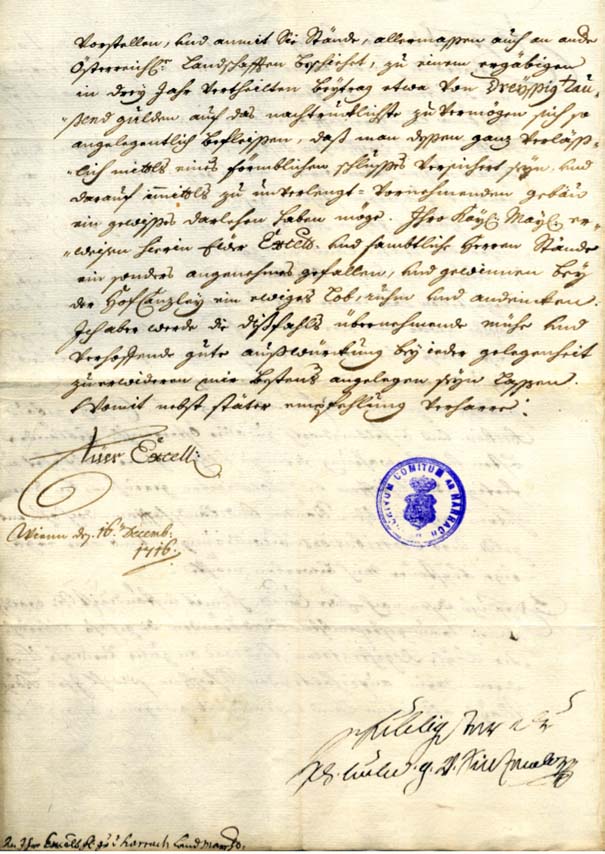 Vorstellen, und anmit Sie Stände, allermassen auch an ande
Österreich. Landschafften beschiehet, zu einem ergäbigen
in drey Jahr vertheilten beytrag etwa von Dreyssig tau-
„ßend gulden auch das nachtrucklichste zu vermögen sich so
angelegentlich befleissen, daß man dessen gantz verläß-
„lich mittls eines förmblichen schlusses versichert seyn, und
darauf immittls zu unverlengt-vornehmenden gebäu
ein gewisses darlehen haben möge. Ihro Kayl. Mayl. er-
„weisen hierin Euer Excell. und sambtliche Herren Stände
ein sonders angenehmes gefallen, und gewinnen bey
der HofCanzley ein ewiges Lob, ruhm und andencken.
Ich aber werde die dißfahls übernehmende mühe und
verhoffende gute außwürckung bey ieder gelegenheit
zu erwideren mir bestens angelegen seyn lassen.
Womit nebst stäter empfehlung verharre.
Euer Excell:
Wienn den 16. Decemb.
1716.
ARCHIVUM COMITUM AB HARRACH
An Ihro Excell. H. gr. v. Harrach Land Marsch.